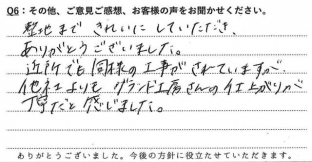 Q6：その他、ご意見ご感想、お客様の声をお聞かせください。
整地まで きれいに していただき、
ありがとうございました。
近所でも同様の工事がされていますが、
他社よりも グランド工房さんの仕上がりが
丁寧だと感じました。
ありがとうございました。今後の方針に役立たせていただきます。